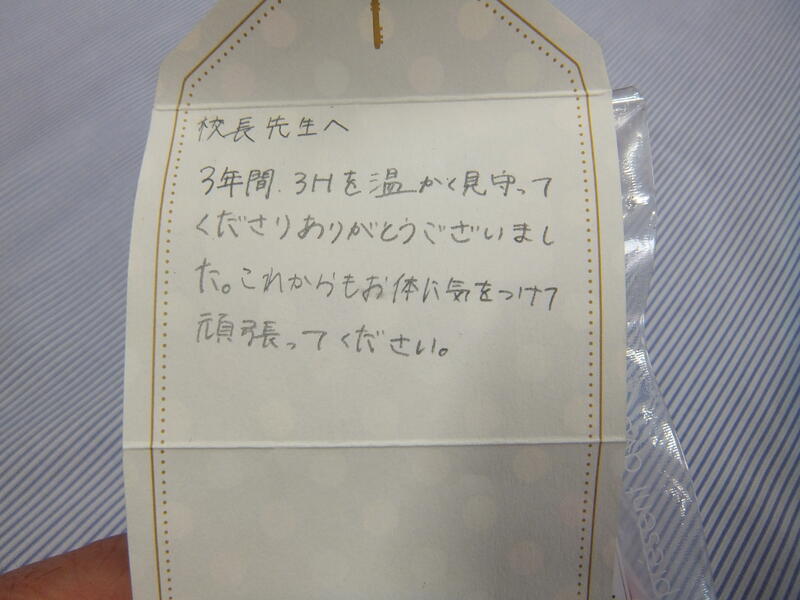 校長先生へ
3年間、3Hを温かく見守って
くださりありがとうございまし
た。これからもお体に気をつけて
頑張ってください。
present